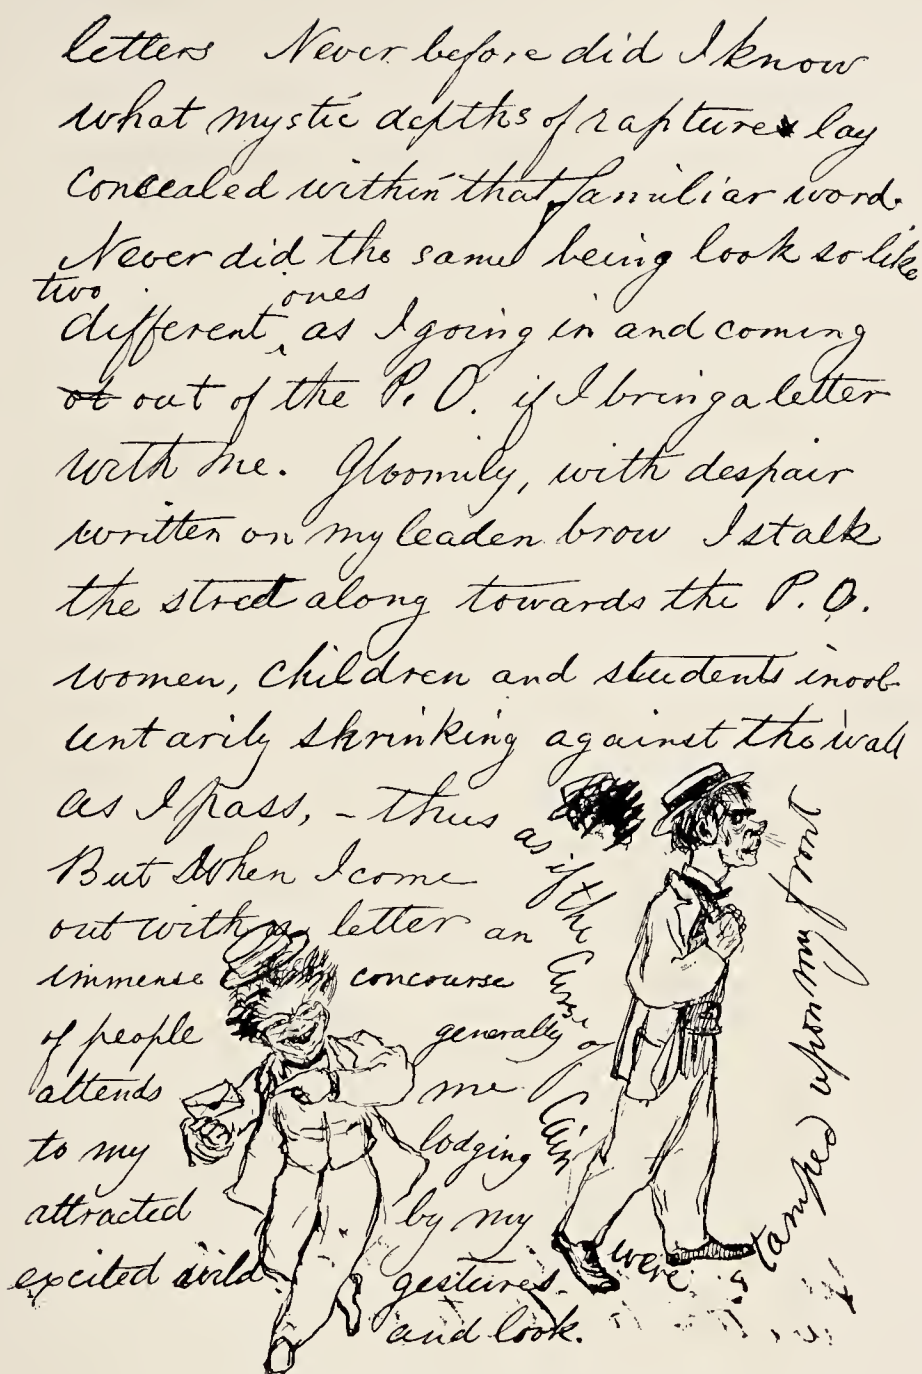 letters Never before did I know
what mystic depths of rapture lay
concealed within that familiar word.
Never did the same being look so like
two
different ones as I going in and coming
ot out of the P. O. if I bring a letter
with me. Gloomily, with despair
written on my leaden brow I stalk
the street along towards the P. O.
women, children and students invol-
untarily shrinking against the wall
as I pass, – thus
as if the Curse of Cain
were
stamped upon my front
But When I come
out with a letter an
immense concourse
of people generally
attends me
to my lodging
attracted by my
excited wild gestures
and look.